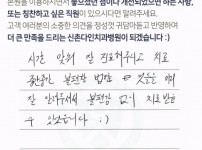 본원을 이용하시면서 좋았던 점이나 개선되었으면 하는 사항,
또는 칭찬하고 싶은 직원이 있으시다면 알려주세요.
고객 여러분의 소중한 의견을 정성껏 귀담아듣고 반영하여
더 큰 만족을 드리는 신촌다인치과병원이 되겠습니다 :)
시간 안의 잘 진료해주시고 치료
중간중간 불편한 법한 것들을
잘 안내주셔서 불편함 없이 치료받을
수 있었습니다 :)